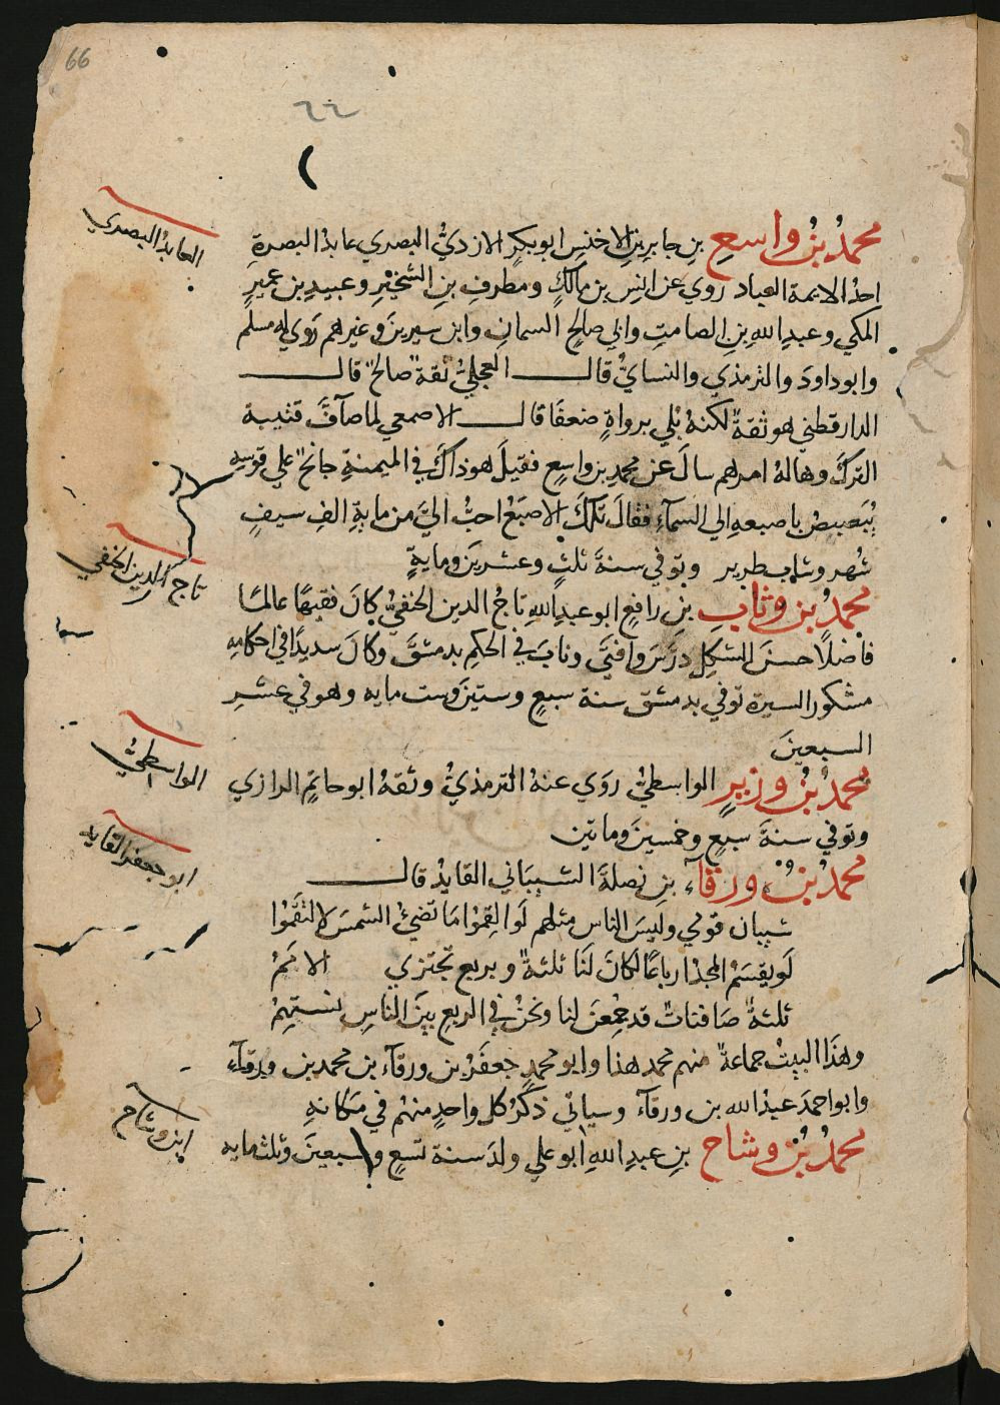 66
٦٦
محمدُ بنُ واسعِ بنِ جابرِ بنِ الاخنسِ ابو بكرٍ الازديُّ البصري عابدُ البصرةِ
العابدُ البصري
احدُ الايمة العباد روي عن انسِ بن مالكٍ ومطرفِ بنِ الشخيّرِ وعبيدِ بن عميرٍ
المكي وعبدِ اللهِ بنِ الصامتِ وابي صالحٍ السمانِ وابن سيرينَ وغيرهم رَوي له مسلم
وابو داودَ والترمذي والنسايُّ قال العجليُّ ثقةٌ صالحٌ قال
الدارقطني هو ثقةٌ لكنهُ بُلي برواةٍ ضعفَا قال الاصمعي لما صآفَّ قتيبة
التركَ وهالهُ امرهم سالَ عن محمد بن واسعٍ فقيلَ هو ذاكَ في الميمنةِ جانحٌ علي قوسه
يُبَصبِصُ باصبعهِ الي السمآءِ فقالَ تلكَ الاصبَعُ احبُّ اليَّ من مايةِ الفِ سيفٍ
شهر وشابٍ طرير وتوفي سنةَ ثلثٍ وعشرينَ ومايةٍ
محمدُ بنُ وثابِ بن رافعٍ ابو عبدِ اللهِ تاجُ الدين الحنفيُّ كانَ فقيهًا عالمًا
تاج الدين الحنفي
فاضلًا حسنَ الشكلِ درَّسَ وافتَي ونابَ في الحكمِ بدمشقَ وكانَ سديدًا في احكامِه
مشكور السيرة توفي بدمشق سنة سبعٍ وستينَ وست مايه وهو في عشرِ
السبعينَ
محمدُ بنُ وزيرٍ الواسطيُّ رَوَي عنهُ الترمذيُّ وثقهُ ابو حاتمٍ الرازي
الواسطيُّ
وتوفي سنةَ سبعٍ وخمسينَ وماتين
محمدُ بنُ ورقآءَ بنِ نصلةَ الشيبَاني القايدُ قال
ابو جعفر القايد
شيبان قومي وليسَ الناس مثلهم لَو القِمُوا مَا تضيُ الشمسَ لالتَقَمُوا
لَو يقسَمُ المجدُ ارباعًا لكانَ لنَا ثلثةٌ وبربع تجتزي الامَمُ
ثلثةٌ صَافناتٌ قد جُمِعنَ لنا ونحنُ في الربعِ بينَ الناسِ نستهمُ
وهَذا البيتُ جماعةٌ منهم محمد هذا وابو محمدٍ جعفَرُ بن ورقآءَ بن محمد بن ورقآء
وابو احمدَ عبدُ الله بن ورقآءَ وسياتي ذكرُ كل واحدٍ منهُم في مَكانهِ
محمدُ بنُ وشاح بنِ عبدِ اللهِ ابو علي ولدَ سنة تسعٍ وسبعينَ وثلثمايه
ابن وشاح